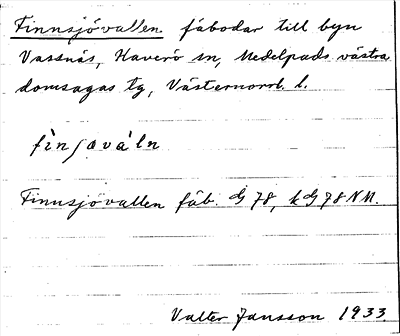 Finnsjövallen fäbodar till byn
Vassnäs, Haverö sn, Medelpads västra
domsagas tg, Västernorrl. l.
fìnʃøvàln
Finnsjövallen fäb. G 78, kG 78 NM.
Valter Jansson 1933